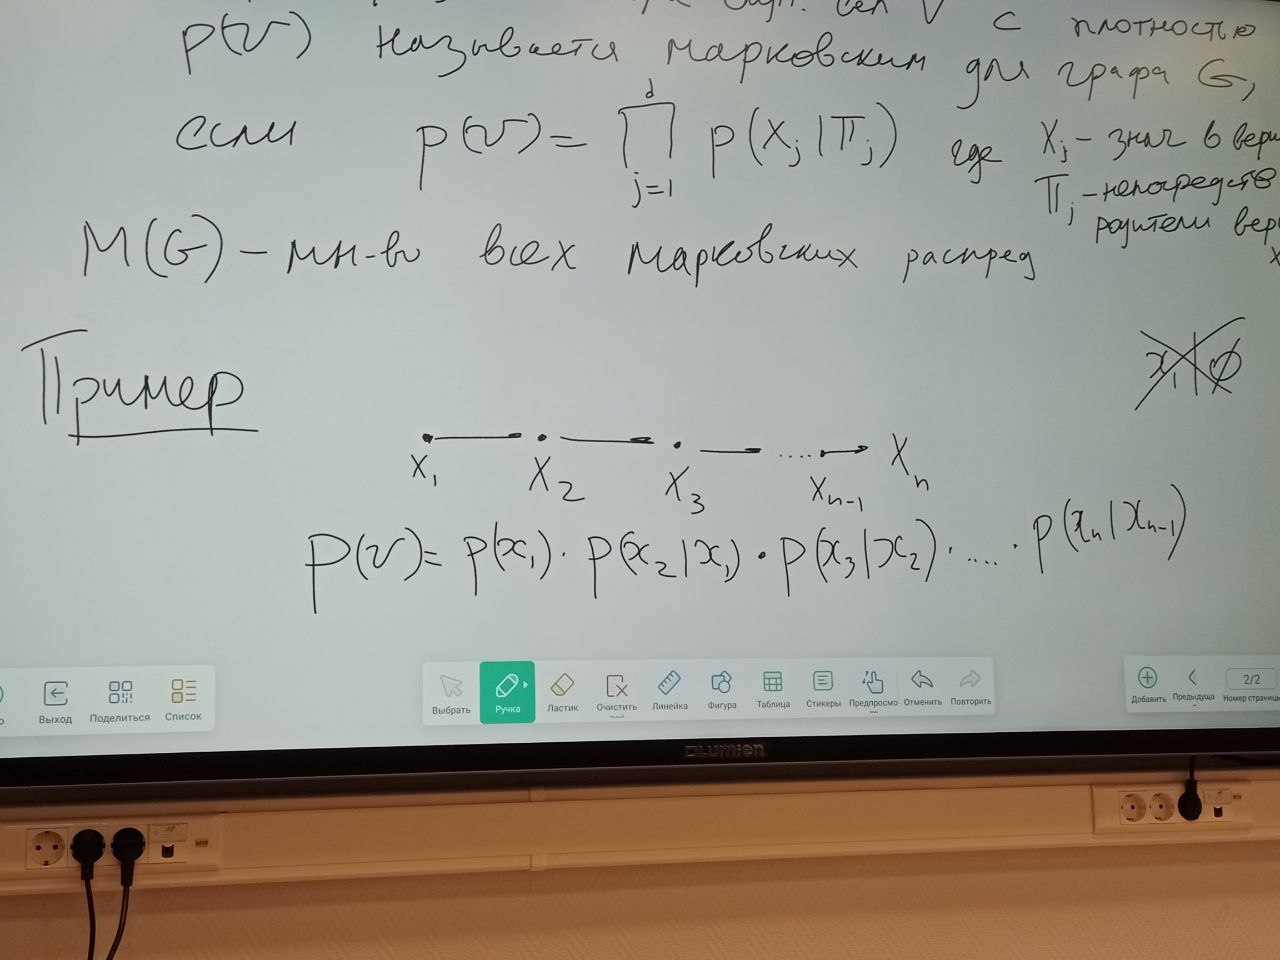 вел V с плотностью
p(v) называется марковским для графа G,
если p(v) = ∏ p(x_j | π_j) где x_j - знач в верш
d
j=1
π_j - непосредств
родители верш
x
M(G) - мн-во всех марковских распред
Пример
x_1 | ∅
x_1 x_2 x_3 .... x_{n-1} x_n
p(v) = p(x_1) · p(x_2 | x_1) · p(x_3 | x_2) · .... · p(x_n | x_{n-1})
Выход Поделиться Список
Выбрать Ручка Ластик Очистить Линейка Фигура Таблица Стикеры Предпросмо Отменить Повторить
Добавить Предыдуща Номер страницы
2/2
Lumien